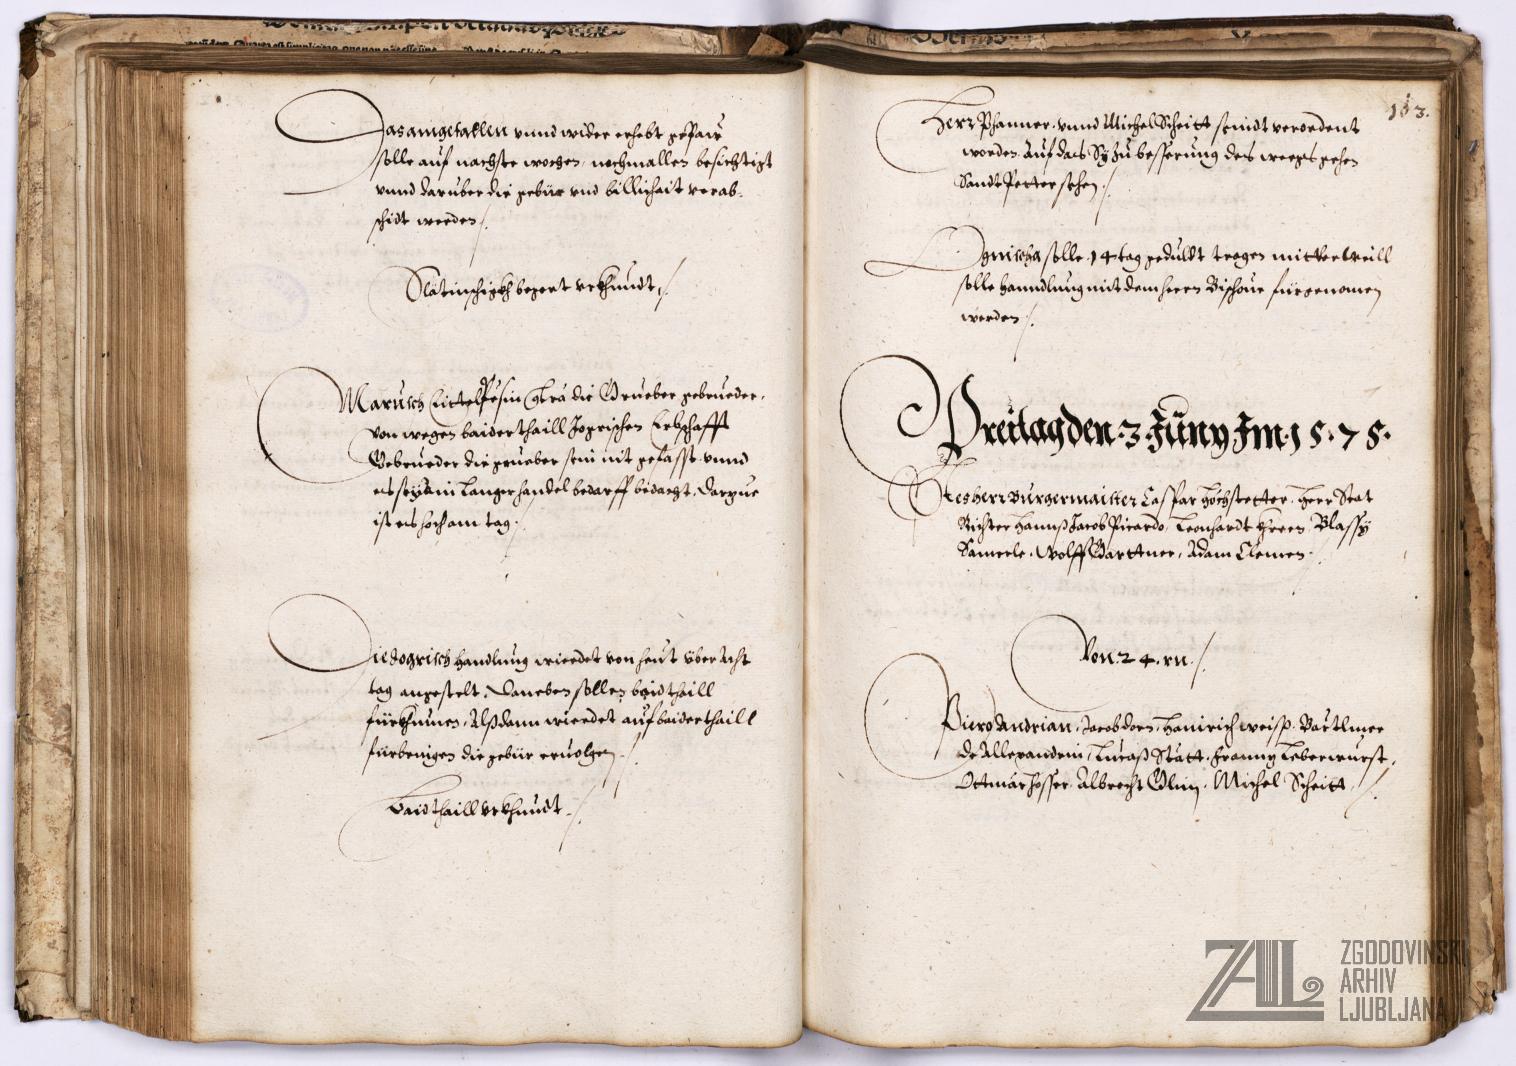 Das aingefallen unnd wider erhebt gepair
solle auf nachste wochen, nochmallen besichtigt
unnd daruber die gebür und billichait verab-
schidt werden
Slatinschigkh begert urkhundt
Marusch
von wegen baider thaill Erbschafft
Gebrueder die grueber sein nit gefasst unnd
es sey ain langer handel bedarff bedacht, darzue
ist es hoch am tag
Die dogrisch handlung wierdet von heut über Acht
tag angestelt, Daneben sollen baid thaill
fürkhumen, Alßdann wierdet auf baider thaill
fürbringen die gebür ervolgen
Baid thaill urkhundt
113.
Herr Phanner unnd Michel Scheitt seindt verordent
worden auf das Sy zu besserung des weegs gehen
Sandt Petter sehen
Ogrischa solle 14 tag geduldt tragen mitler weill
solle hanndlung mit dem herrn Bischove fürgenomen
werden
Freitag den 3 Juny Im 1575.
Herr Burgermaister Caspar Höchstetter, Herr Stat
Richter Hannß Jacob Picardo, Leonhardt Hrein, Blassy
Samerle, Wolff Garttner, Adam Clemen
Von 24.rn.
Piero Andrian, Jacob dorn, Hainrich weiss, Bartlmee
de Allexandrin, Lucaß Statt, Frantz Leberwurst,
Ottmar hosser, Albrecht Glin, Michel Scheitt
ZAL
ZGODOVINSKI
ARHIV
LJUBLJANA